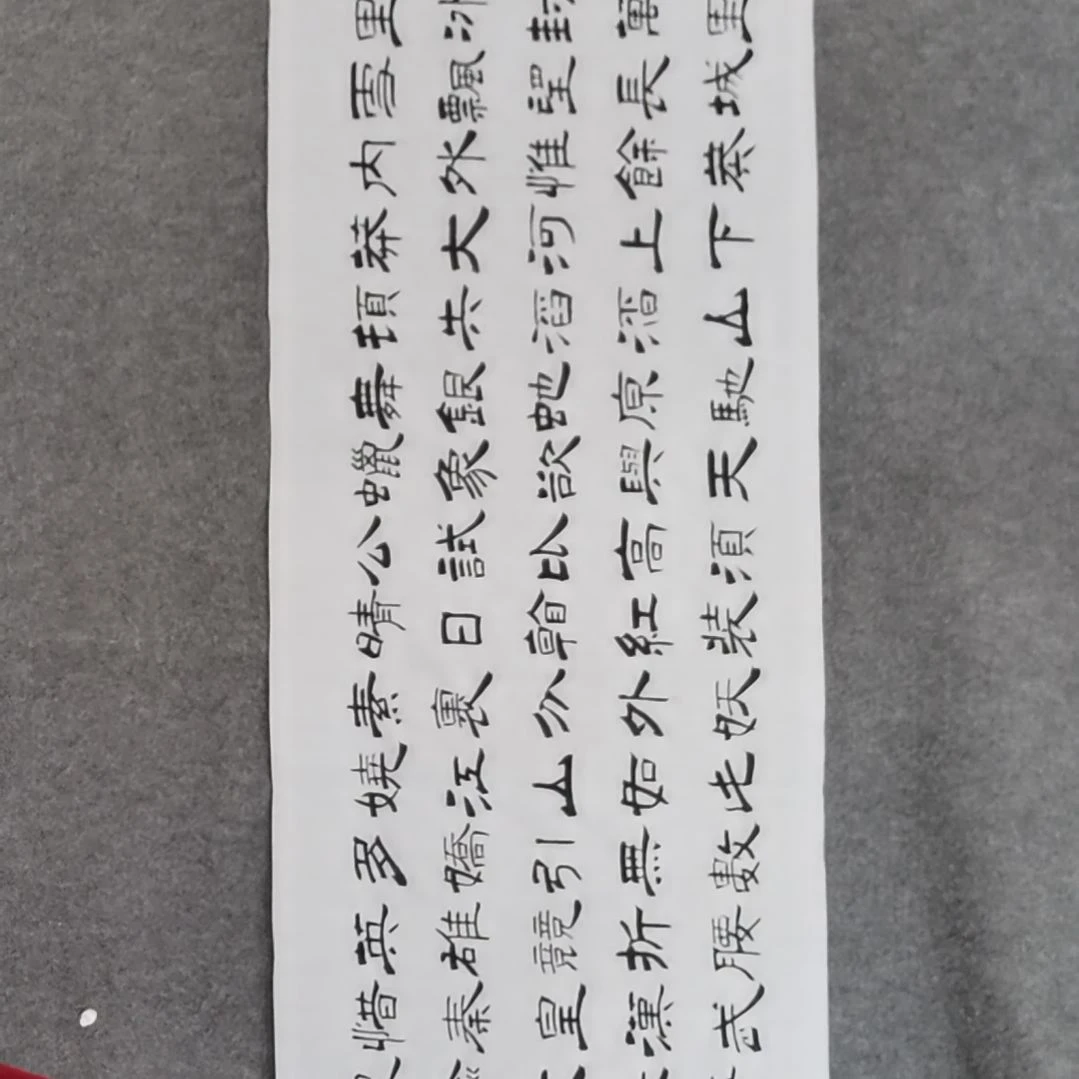 里冰封萬里
雪飄望長城
内外惟餘莽
莽大河上下
頓失滔滔山
舞銀蛇原馳
蠟象欲與天
公試比高須
晴日看紅装
素裹分外妖
嬈江山如此
多嬌引無數
英雄競折腰
惜秦皇漢武